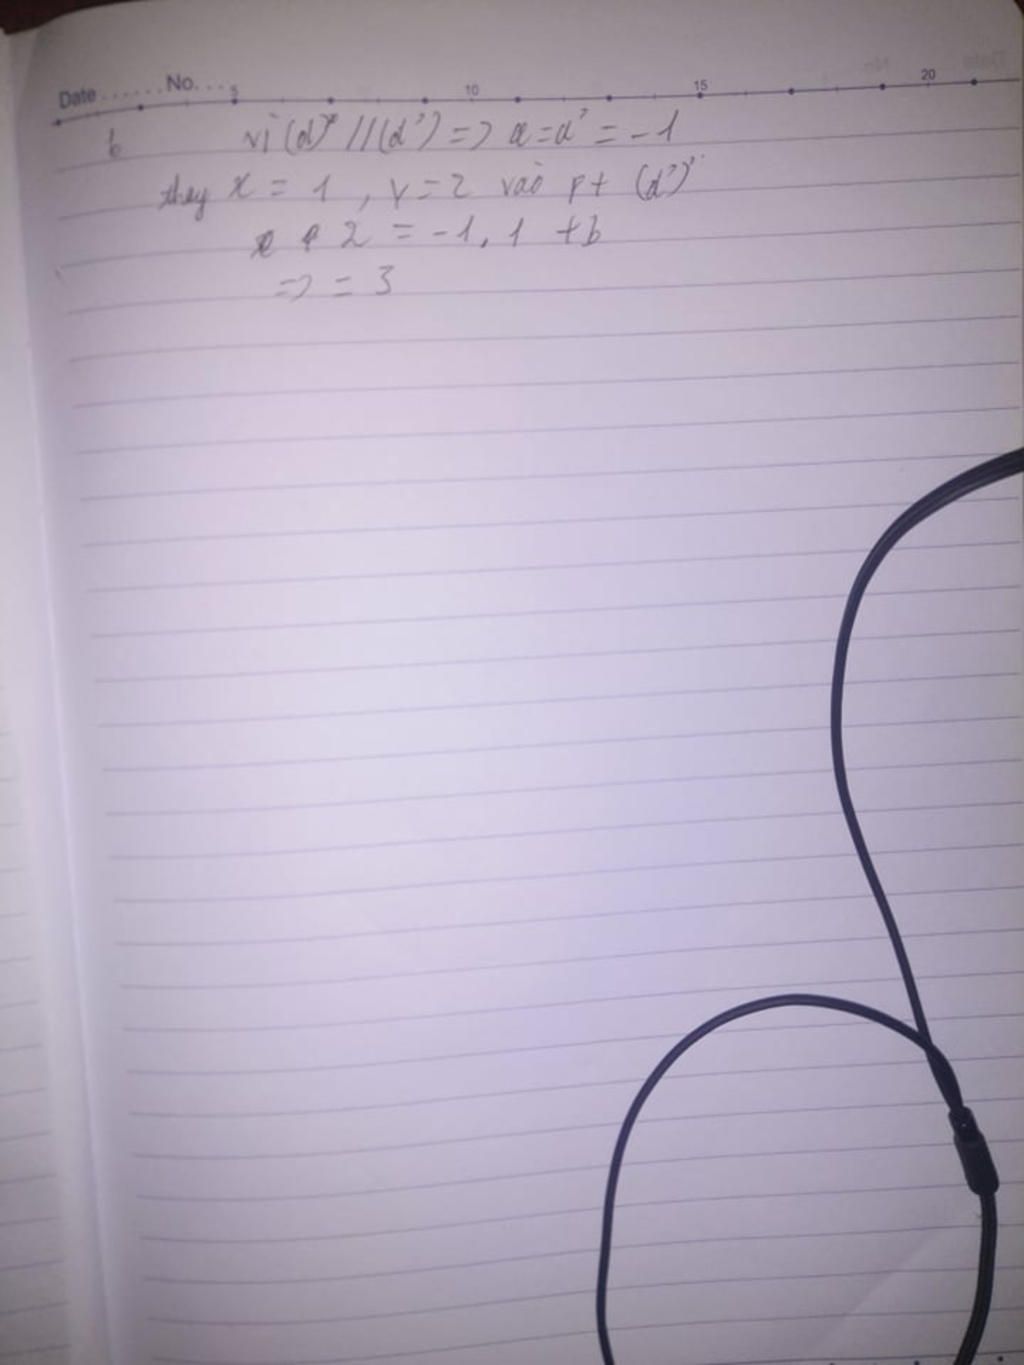 Date ...... No. ... 5 10 15 20
b vì (d) // (d') => a = a' = -1
thay x = 1, y = 2 vào pt (d')
2 = -1.1 + b
=> = 3